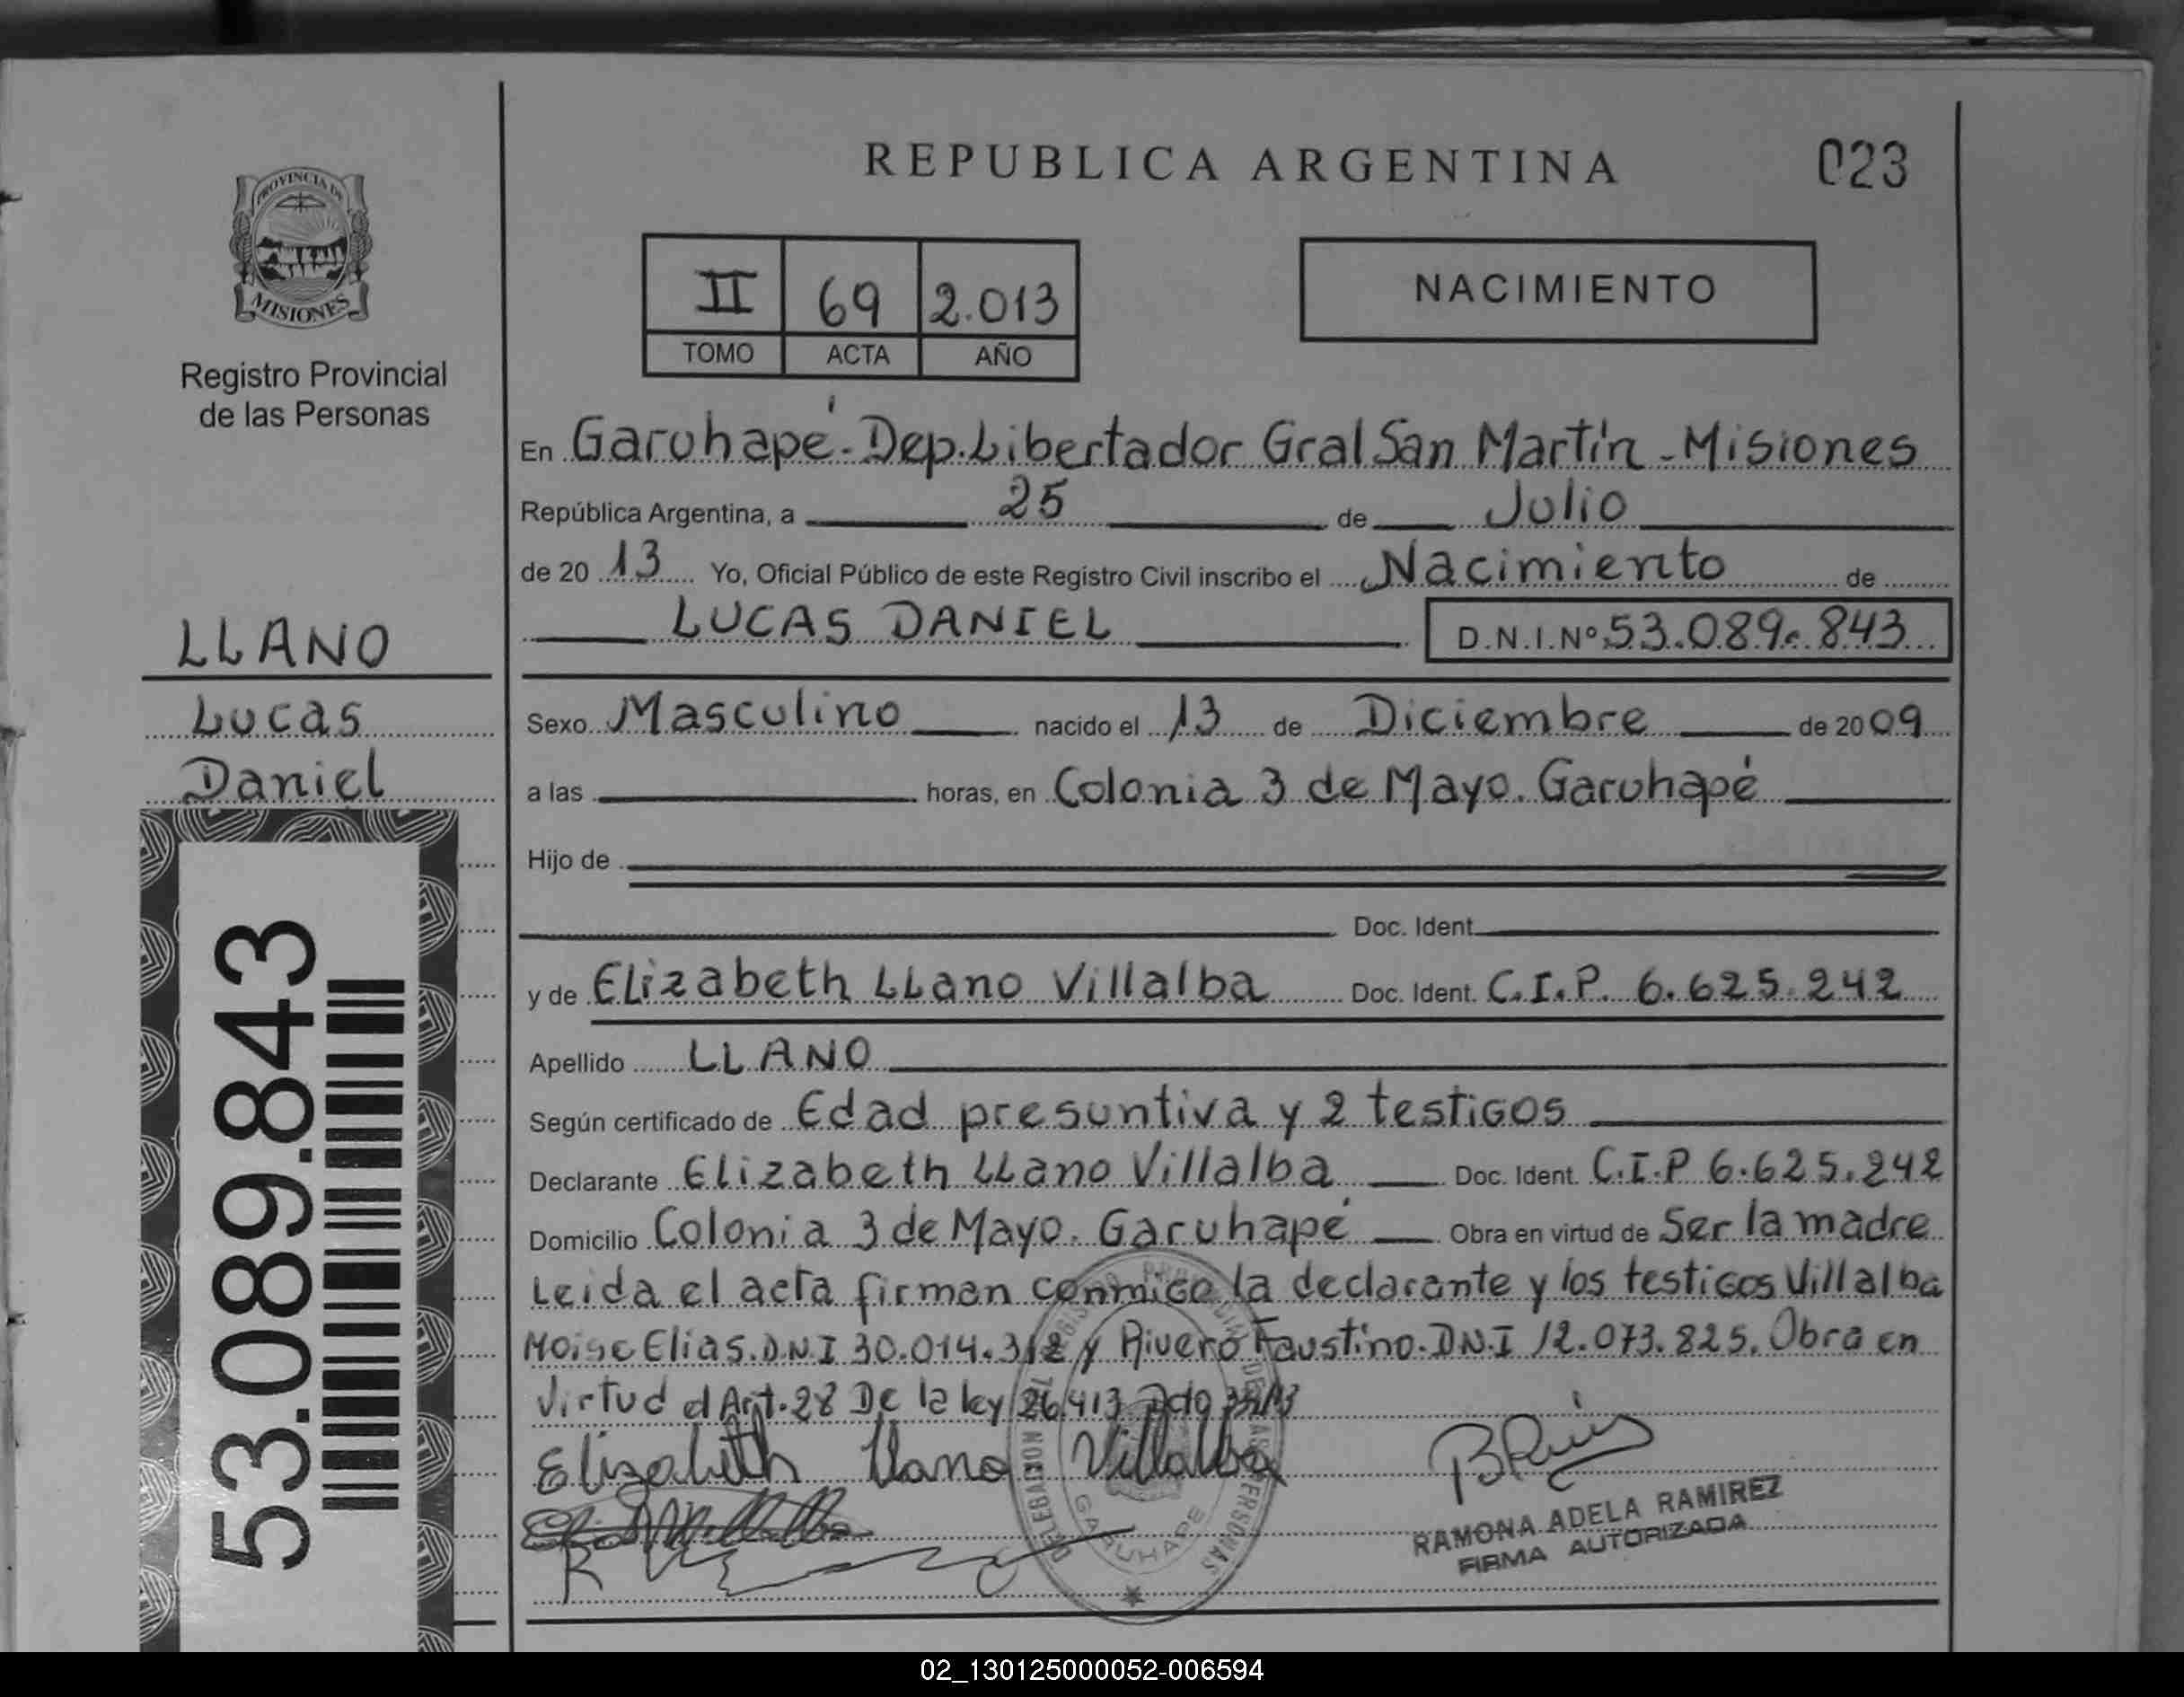 REPUBLICA ARGENTINA
023
PROVINCIA DE
MISIONES
Registro Provincial
de las Personas
II 69 2.013
TOMO ACTA AÑO
NACIMIENTO
En Garuhapé - Dep. Libertador Gral San Martín - Misiones
República Argentina, a 25 de Julio
de 20 13 Yo, Oficial Público de este Registro Civil inscribo el Nacimiento de
LUCAS DANIEL D.N.I.Nº 53.089.843
LLANO
Lucas
Daniel
53.089.843
Sexo Masculino nacido el 13 de Diciembre de 2009
a las horas, en Colonia 3 de Mayo. Garuhapé
Hijo de
Doc. Ident.
y de Elizabeth LLano Villalba Doc. Ident. C.I.P. 6.625.242
Apellido LLANO
Según certificado de Edad presuntiva y 2 testigos
Declarante Elizabeth LLano Villalba Doc. Ident. C.I.P 6.625.242
Domicilio Colonia 3 de Mayo. Garuhapé Obra en virtud de Ser la madre
Leida el acta firman conmigo la declarante y los testigos Villalba
Moise Elias. D.N.I 30.014.312 y Rivero Faustino. DN.I 12.073.825. Obra en
virtud d Art. 28 De la ley 26.413
Elizabeth Llano Villalba
RAMONA ADELA RAMIREZ
FIRMA AUTORIZADA
GARUHAPE
02_130125000052-006594